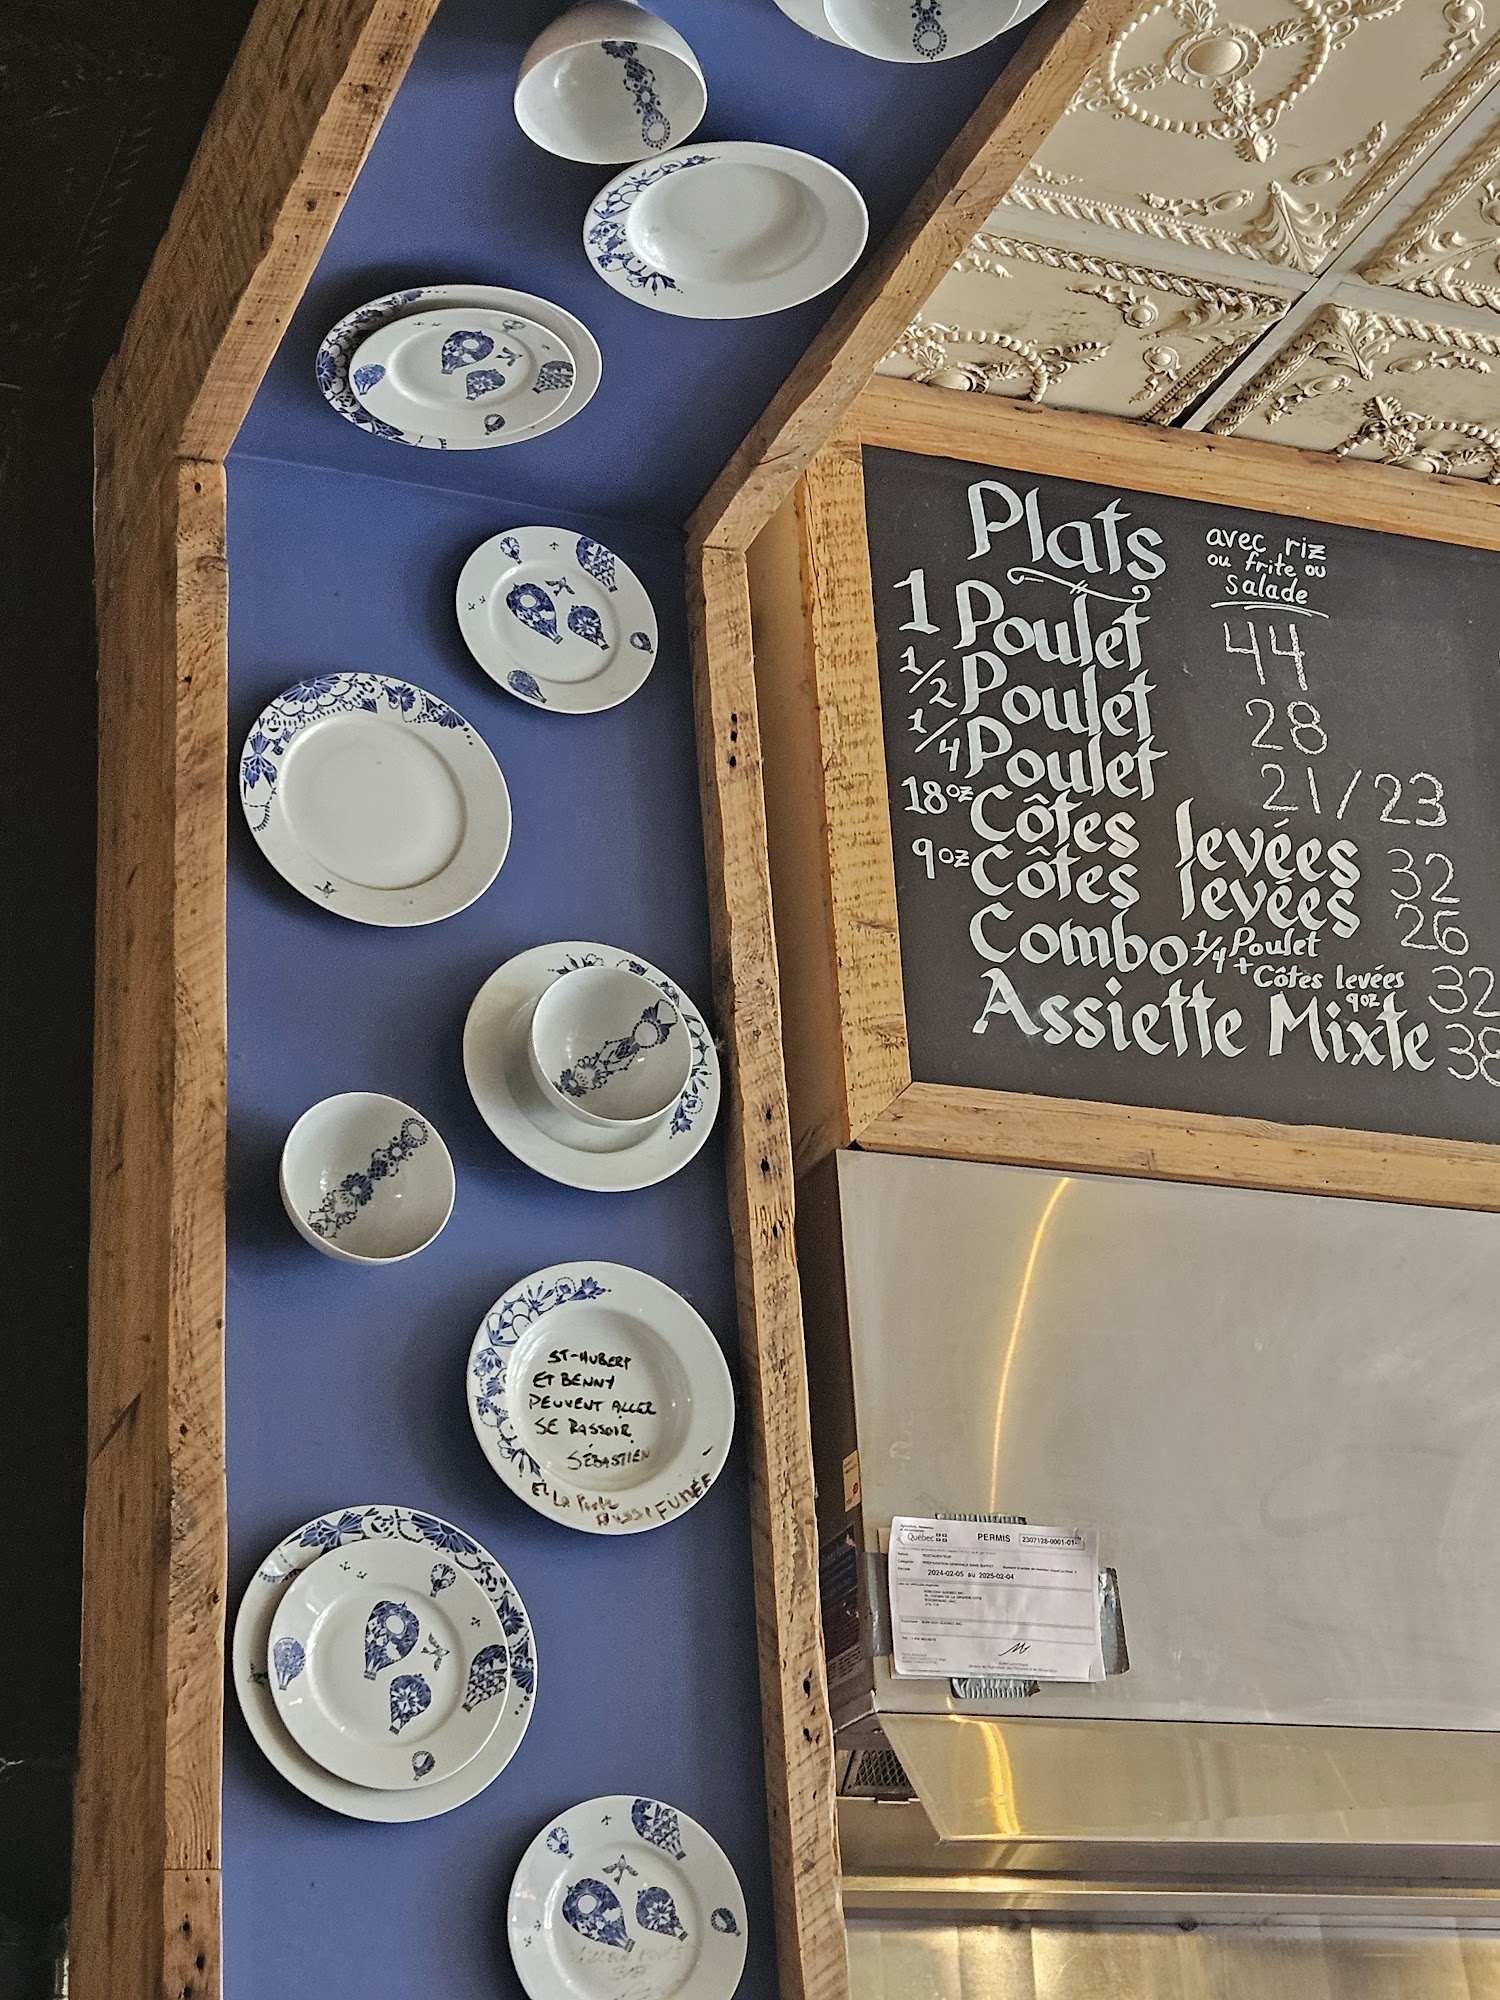 Plats
avec riz
ou frite ou
salade
1 Poulet 44
1/2 Poulet 28
1/4 Poulet 21/23
18oz Côtes levées 32
9oz Côtes levées 26
Combo 1/4 Poulet
+ Côtes levées 32
9oz
Assiette Mixte 38
ST-HUBERT
ET BENNY
PEUVENT ALLER
SE RASSOIR.
SÉBASTIEN
Et La Porte
AUSSI FUMÉE
Québec PERMIS 2307128-0001-01
2024-02-05 au 2025-02-04